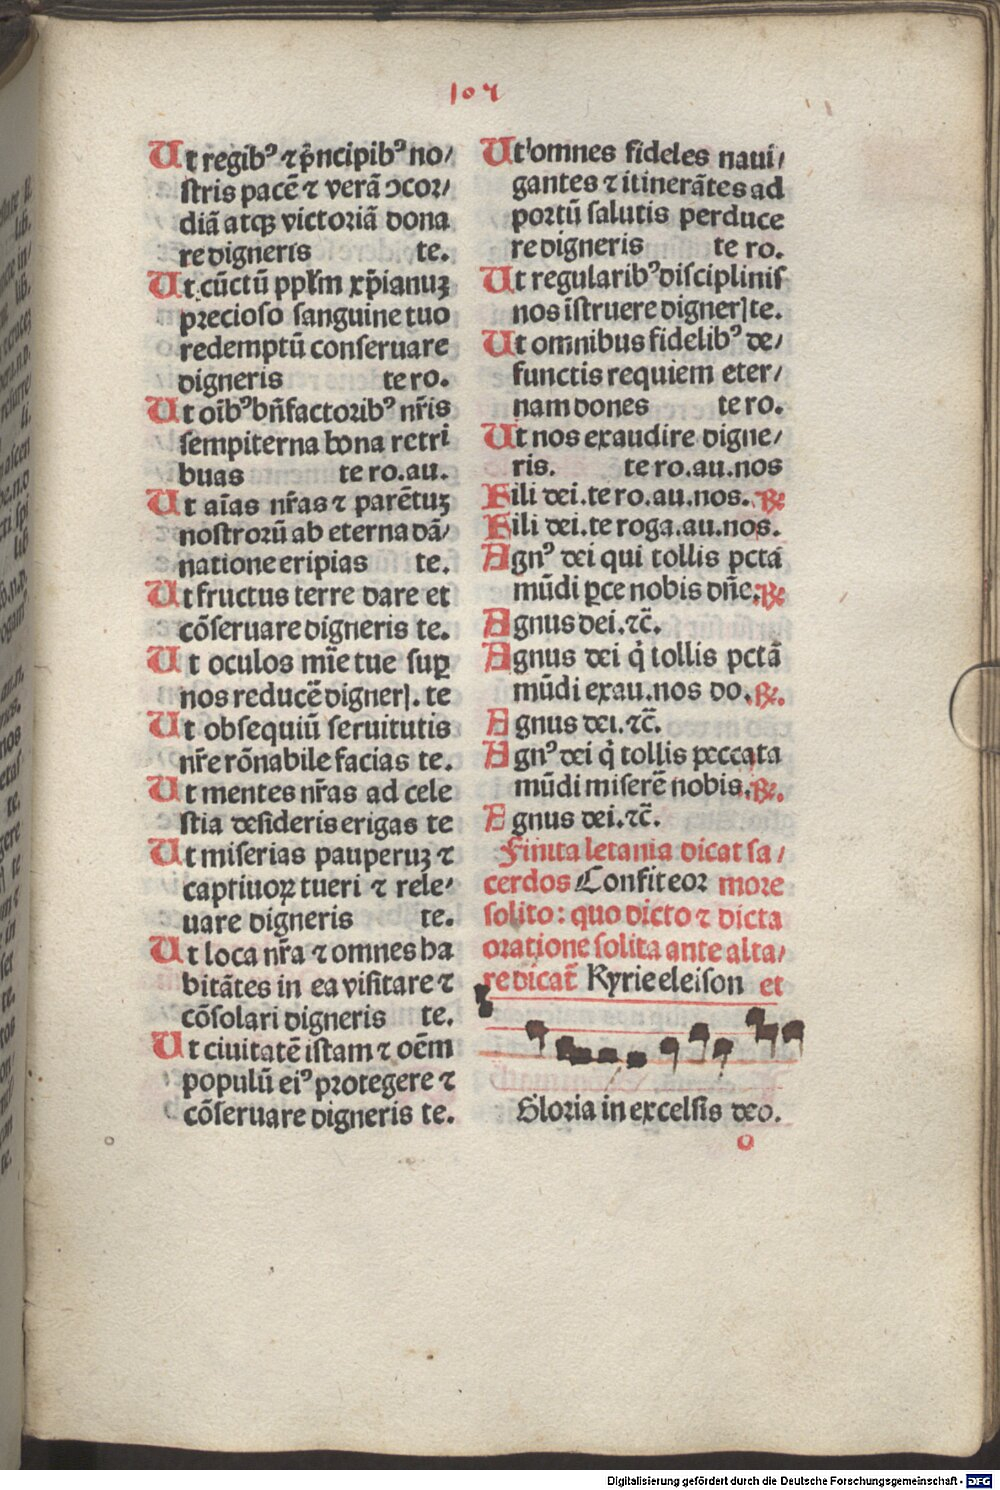 107
Ut regibꝰ ⁊ pͥncipibꝰ no/
stris pacē ⁊ verā ↄcor/
diā atqꝫ victoriā dona
re digneris te.
Ut cūctū ppl̄m xp̄ianuꝫ
precioso sanguine tuo
redemptū conseruare
digneris te ro.
Ut oīb⁹ bn̄factoribꝰ nr̄is
sempiterna bona retri
buas te ro.au.
Ut aīas nr̄as ⁊ parētuꝫ
nostrorū ab eterna dā/
natione eripias te.
Ut fructus terre dare et
cōseruare digneris te.
Ut oculos mīe tue suꝑ
nos reducē dignerꝭ. te
Ut obsequiū seruitutis
nr̄e rōnabile facias te.
Ut mentes nr̄as ad cele
stia desideris erigas te
Ut miserias pauperuꝫ ⁊
captiuoꝝ tueri ⁊ rele/
uare digneris te.
Ut loca nr̄a ⁊ omnes ha
bitātes in ea visitare ⁊
cōsolari digneris te.
Ut ciuitatē istam ⁊ oēm
populū eiꝰ protegere ⁊
cōseruare digneris te.
Ut omnes fideles naui/
gantes ⁊ itinerātes ad
portū salutis perduce
re digneris te ro.
Ut regularibꝰ disciplinis
nos īstruere dignerꝭ te.
Ut omnibus fidelibꝰ de/
functis requiem eter/
nam dones te ro.
Ut nos exaudire digne/
ris. te ro.au.nos
Fili dei.te ro.au.nos. ℞
Fili dei.te roga.au.nos.
Agnꝰ dei qui tollis pctā
mūdi ꝑce nobis dn̄e. ℞
Agnus dei.⁊c̄.
Agnus dei qͥ tollis pctā
mūdi exau.nos do. ℞.
Agnus dei.⁊c̄.
Agnꝰ dei qͥ tollis peccata
mūdi miserē nobis. ℞.
Agnus dei.⁊c̄.
Finita letania dicat sa/
cerdos Confiteor more
solito: quo dicto ⁊ dicta
oratione solita ante alta/
re dicat̄ Kyrieeleison et
Gloria in excelsis deo.
Digitalisierung gefördert durch die Deutsche Forschungsgemeinschaft - DFG